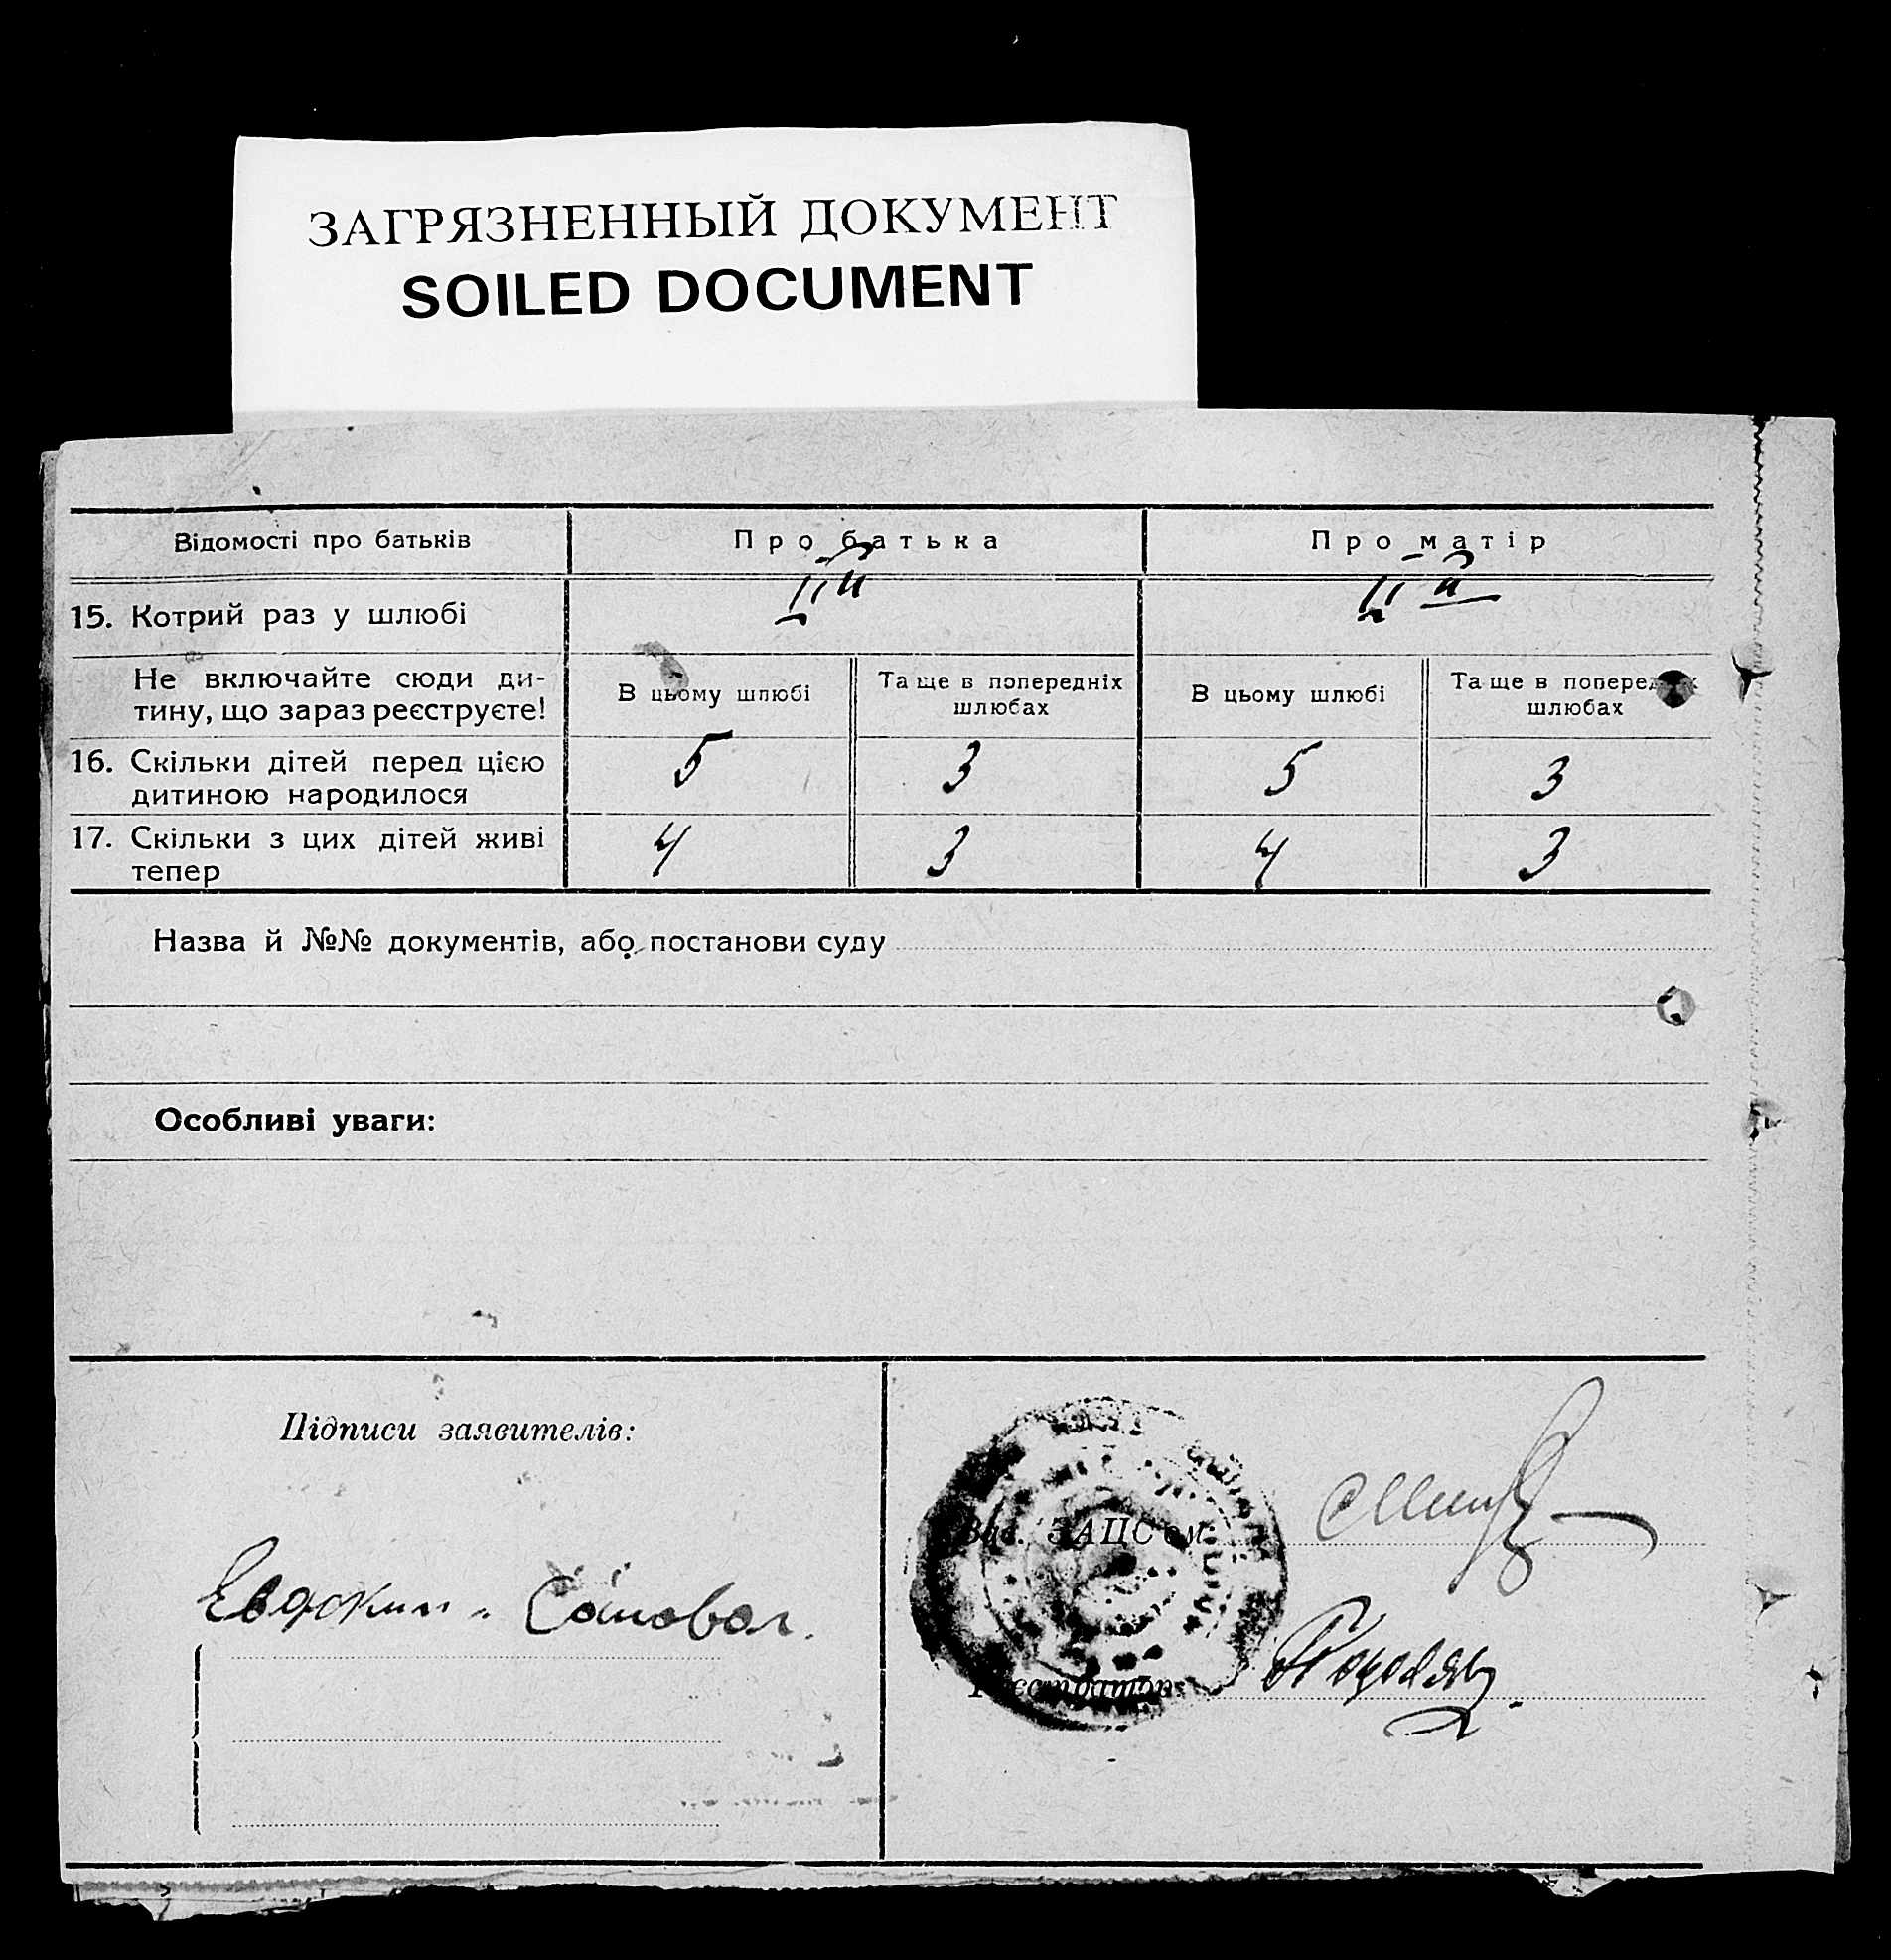 ЗАГРЯЗНЕННЫЙ ДОКУМЕНТ
SOILED DOCUMENT
Відомості про батьків
Про батька
Про матір
15. Котрий раз у шлюбі
II й
II й
Не включайте сюди ди-
тину, що зараз реєструєте!
В цьому шлюбі
Та ще в попередніх
шлюбах
В цьому шлюбі
Та ще в попередніх
шлюбах
16. Скільки дітей перед цією
дитиною народилося
5
3
5
3
17. Скільки з цих дітей живі
тепер
4
3
4
3
Назва й №№ документів, або постанови суду
Особливі уваги:
Підписи заявителів:
Зав. ЗАЦС'ом
Реєстратор